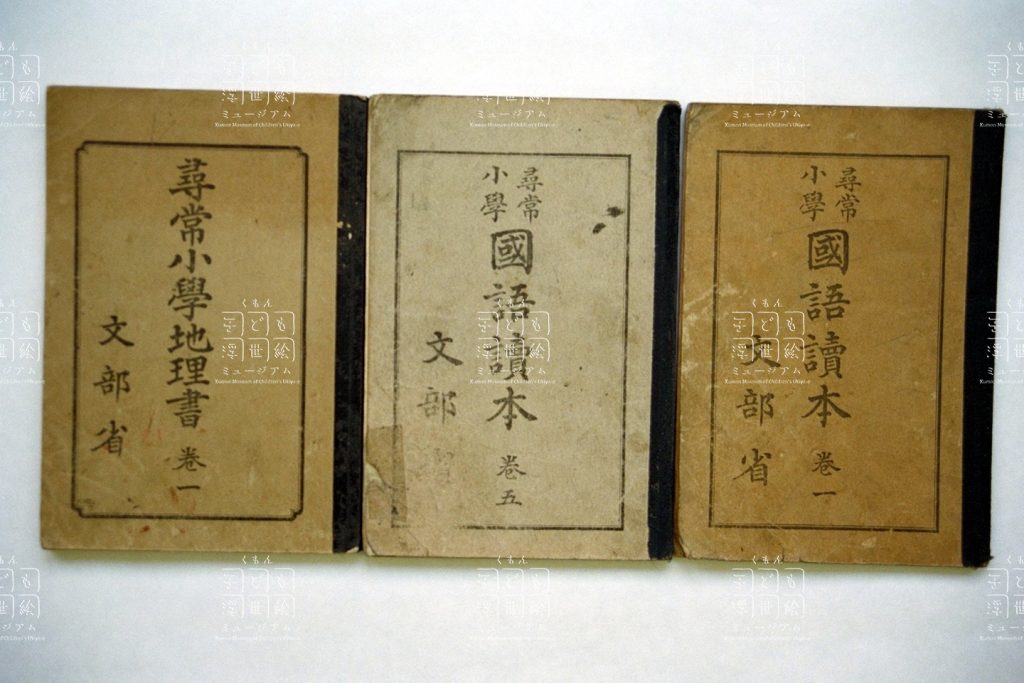 尋常小學地理書 卷一
文部省
尋常
小學
國語讀本 卷五
文部
尋常
小學
國語讀本 卷一
文部省
くもん
子ども
浮世絵
ミュージアム
Kumon Museum of Children's Ukiyo-e